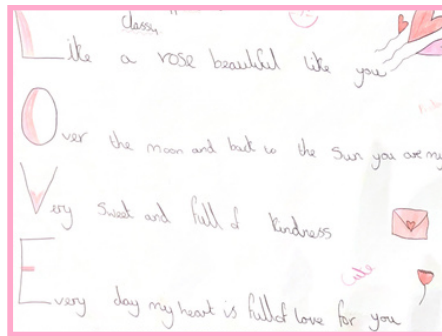 classy
Like a rose beautiful like you
Over the moon and back to the sun you are my
Very sweet and full of kindness
Cute
Every day my heart is full of love for you